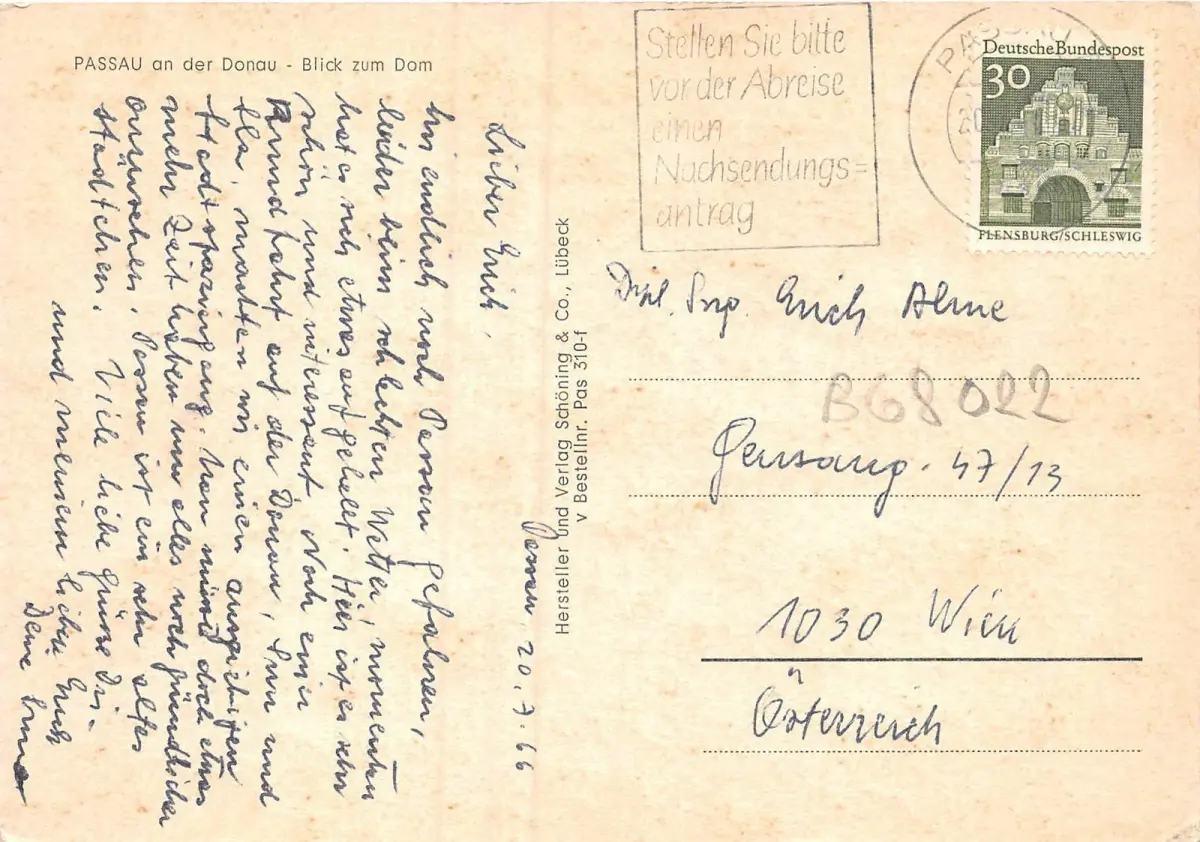 PASSAU an der Donau - Blick zum Dom
Stellen Sie bitte
vor der Abreise
einen
Nachsendungs=
antrag
PASSAU
20
Deutsche Bundespost
30
FLENSBURG/SCHLESWIG
Passau 20.7.66
Lieber Erich,
bin endlich nach Passau gefahren,
leider beim schlechten Wetter, momentan
hat es sich etwas aufgehellt. Hier ist es sehr
schön und interessant. Nach einer
Rundfahrt auf der Donau, Inn und
Ilz, machten wir einen ausgiebigen
Stadtspaziergang. Man müsste doch etwas
mehr Zeit haben um alles noch gründlicher
anzusehen. Passau ist ein sehr altes
Städtchen. Viele liebe Grüsse Dir
und meinem lieben Erich
Deine
Hersteller und Verlag Schöning & Co., Lübeck
v Bestellnr. Pas 310-f
Dipl. Ing. Erich Alme
B68022
Geusaug. 47/13
1030 Wien
Österreich